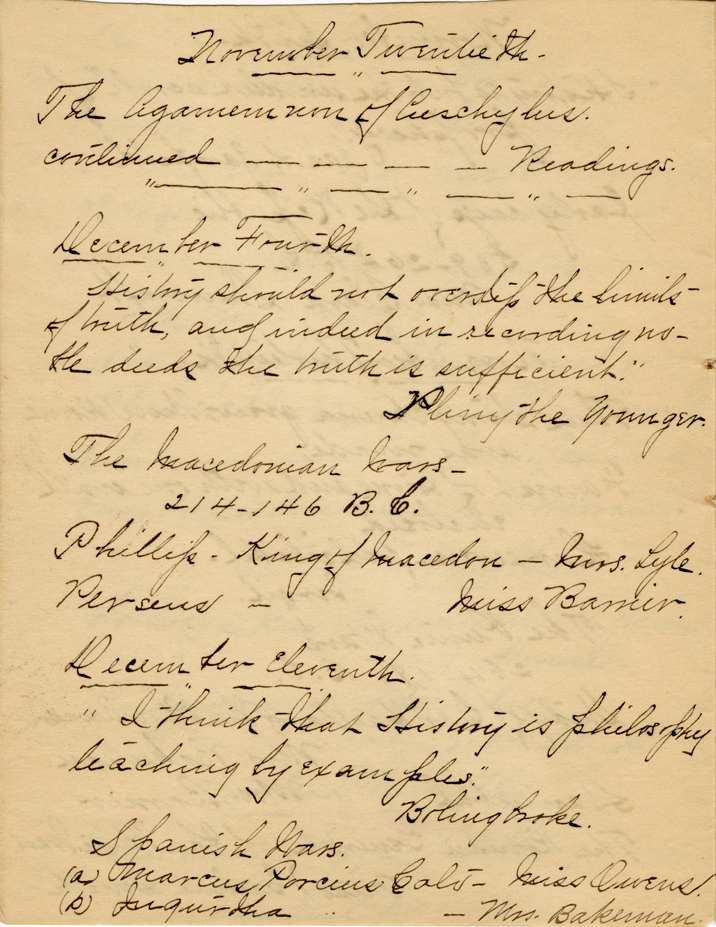 November Twentieth.
The Agamemnon of Aeschylus.
continued — — — — Readings.
December Fourth.
History should not overstep the limits
of truth, and indeed in recording no-
ble deeds the truth is sufficient."
Pliny the Younger.
The Macedonian Wars -
214-146 B.C.
Phillip - King of Macedon - Mrs. Lyle.
Perseus - Miss Barrier.
December Eleventh.
" I think that History is philosophy
teaching by examples."
Bolingbroke.
Spanish Wars.
(a) Marcus Porcius Cato - Miss Owens.
(b) Jugurtha - Mrs. Bakeman.